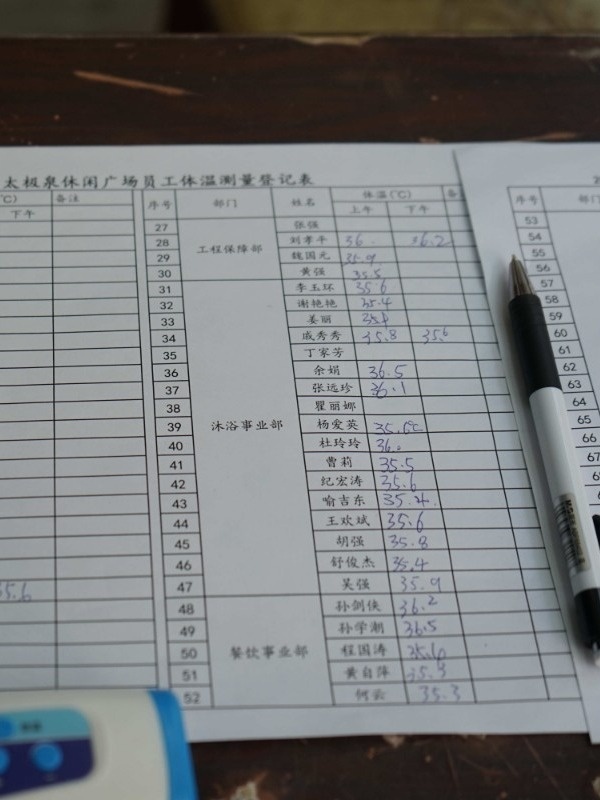 太极泉休闲广场员工体温测量登记表
(℃) 备注 序号 部门 姓名 体温(℃) 备
下午 上午 下午
27 工程保障部 张强
28 刘孝平 36. 36.2
29 魏国光 35.9
30 黄强 35.5
31 沐浴事业部 李玉环 35.6
32 谢艳艳 35.4
33 姜丽
34 戚秀秀 35.8 35.6
35 丁家芳
36 余娟 36.5
37 张远珍 36.1
38 瞿丽娜
39 杨爱英 35.6℃
40 杜玲玲 36.
41 曹莉 35.5
42 纪宏涛 35.6
43 喻吉东 35.4
44 王欢斌 35.6
45 胡强 35.8
46 舒俊杰 35.4
47 吴强 35.9
48 餐饮事业部 孙剑侠 36.2
49 孙学潮 36.5
50 程国涛
51 黄自萍 35.3
52 何云 35.3
35.6
2
序号 部门
53
54
55
56
57
58
59
60
61
62
63
64
65
66
67